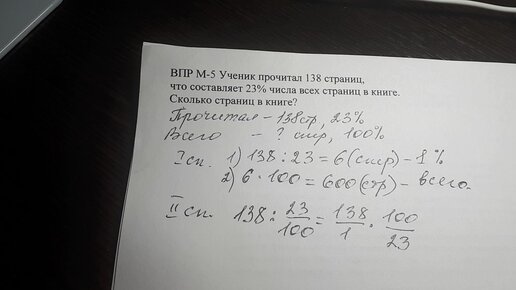 ВПР М-5 Ученик прочитал 138 страниц,
что составляет 23% числа всех страниц в книге.
Сколько страниц в книге?
Прочитал – 138стр, 23%
Всего – ? стр, 100%
I сп. 1) 138 : 23 = 6 (стр) – 1%
2) 6 · 100 = 600 (стр) – всего.
II сп. 138 : 23/100 = 138/1 · 100/23